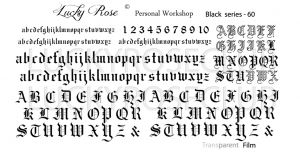 Lucky Rose © Personal Workshop Black series - 60
abcdefghijklmnopqrstuvwxyz 1 2 3 4 5 6 7 8 9 10
abcdefghijklmnopqrstuvwxyz abcdefghijklmnopqrstuvwxyz
abcdefghijklmnopqrstuvwxyz
abcdefghijklmnopqrstuvwxyz
ABCDEF
GHIJKL
MNOPQR
STUVWX
YZ
ABCDEFGHIJ
KLMNOPQRS
TUVWXYZ &
ABCDEFGHIJ
KLMNOPQRS
TUVWXYZ &
Transparent Film